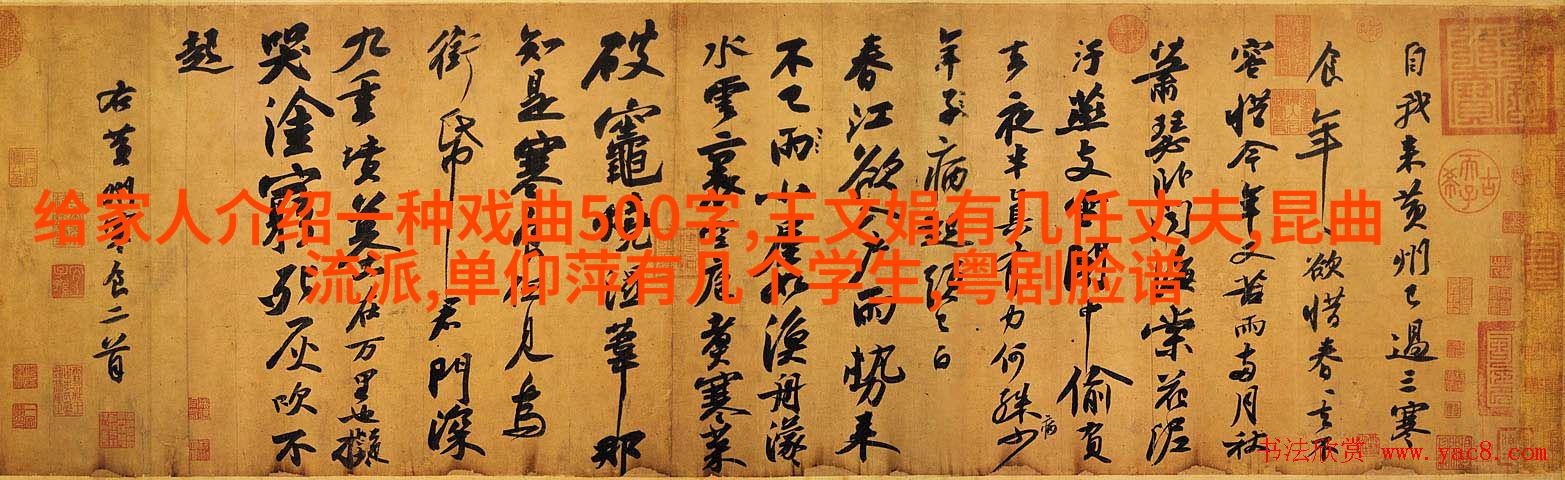 给家人介绍一种戏曲500字,王文娟有几任丈夫,昆曲
流派,单仰萍有几个学生,粤剧脸谱
自我来黄州已過三寒
食年、欲惜春、去不
容惜今年又苦雨两月秋
蕭瑟卧聞海棠花泥
汙燕支雪闇中偷負
去夜半真有力何殊少
病
年子病起頭已白
春江欲入戶雨勢来
不已雨小屋如漁舟濛
水雲裏空庖煮寒菜
破竈燒濕葦那
知是寒食但見烏
銜帋君門深
九重墳墓在万里也擬
哭塗窮死灰吹不
起
右黄州寒食二首
书法欣赏 www.yac8.com